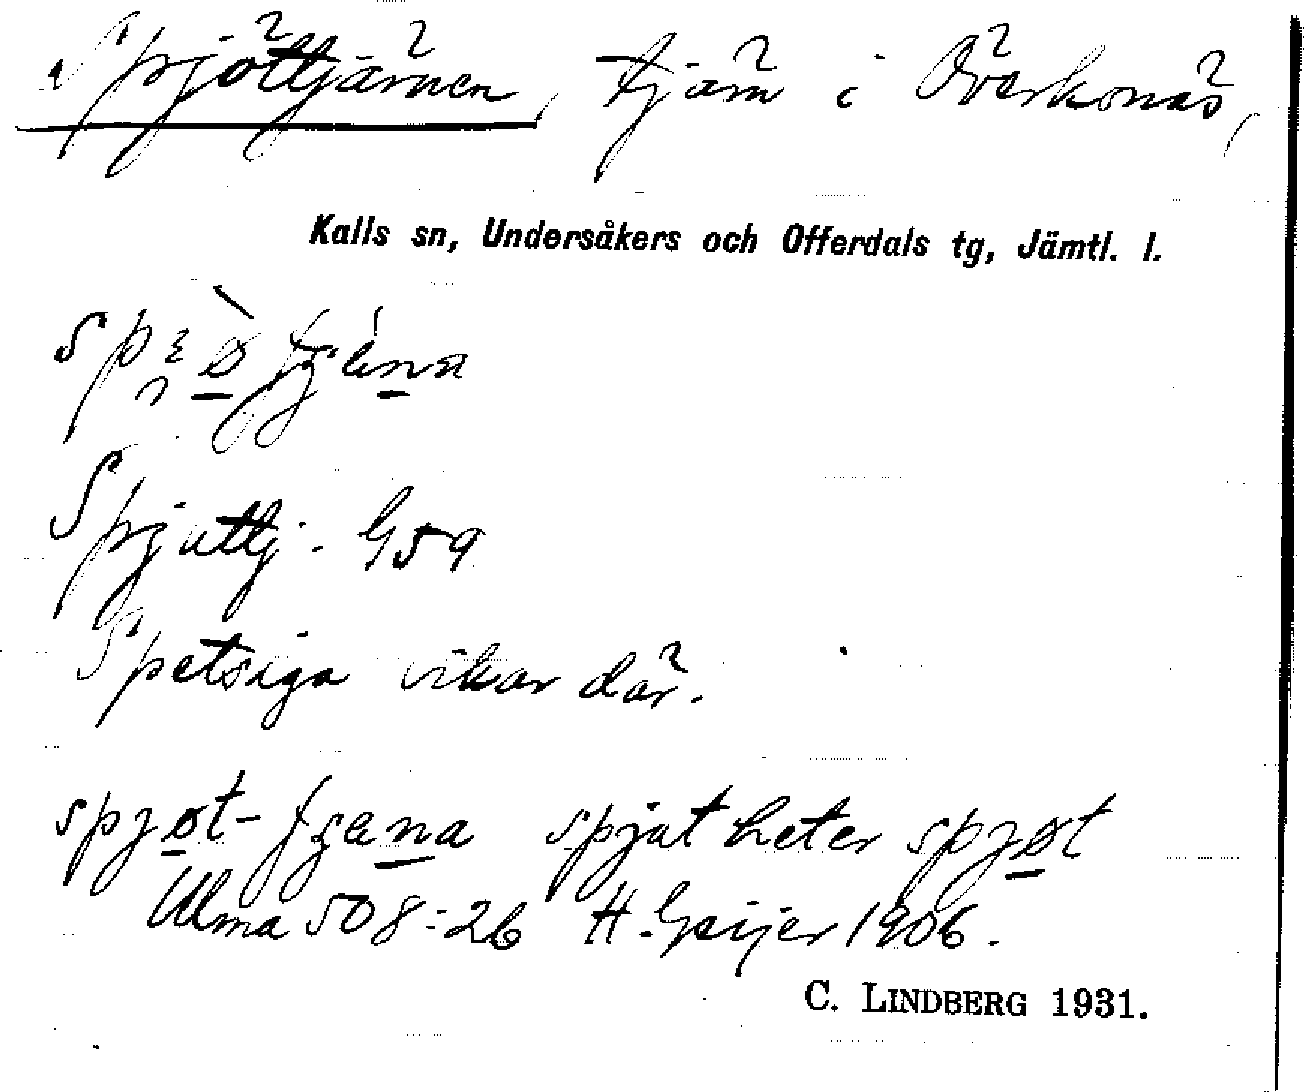 Spjöttjärnen, tjärn i Överkonäs,
Kalls sn, Undersåkers och Offerdals tg, Jämtl. l.
Spjuttj. G59
Spetsiga vikar där.
spjøt- spjut heter spjøt
Ulma 508:26 H. Geijer 1906.
C. LINDBERG 1931.